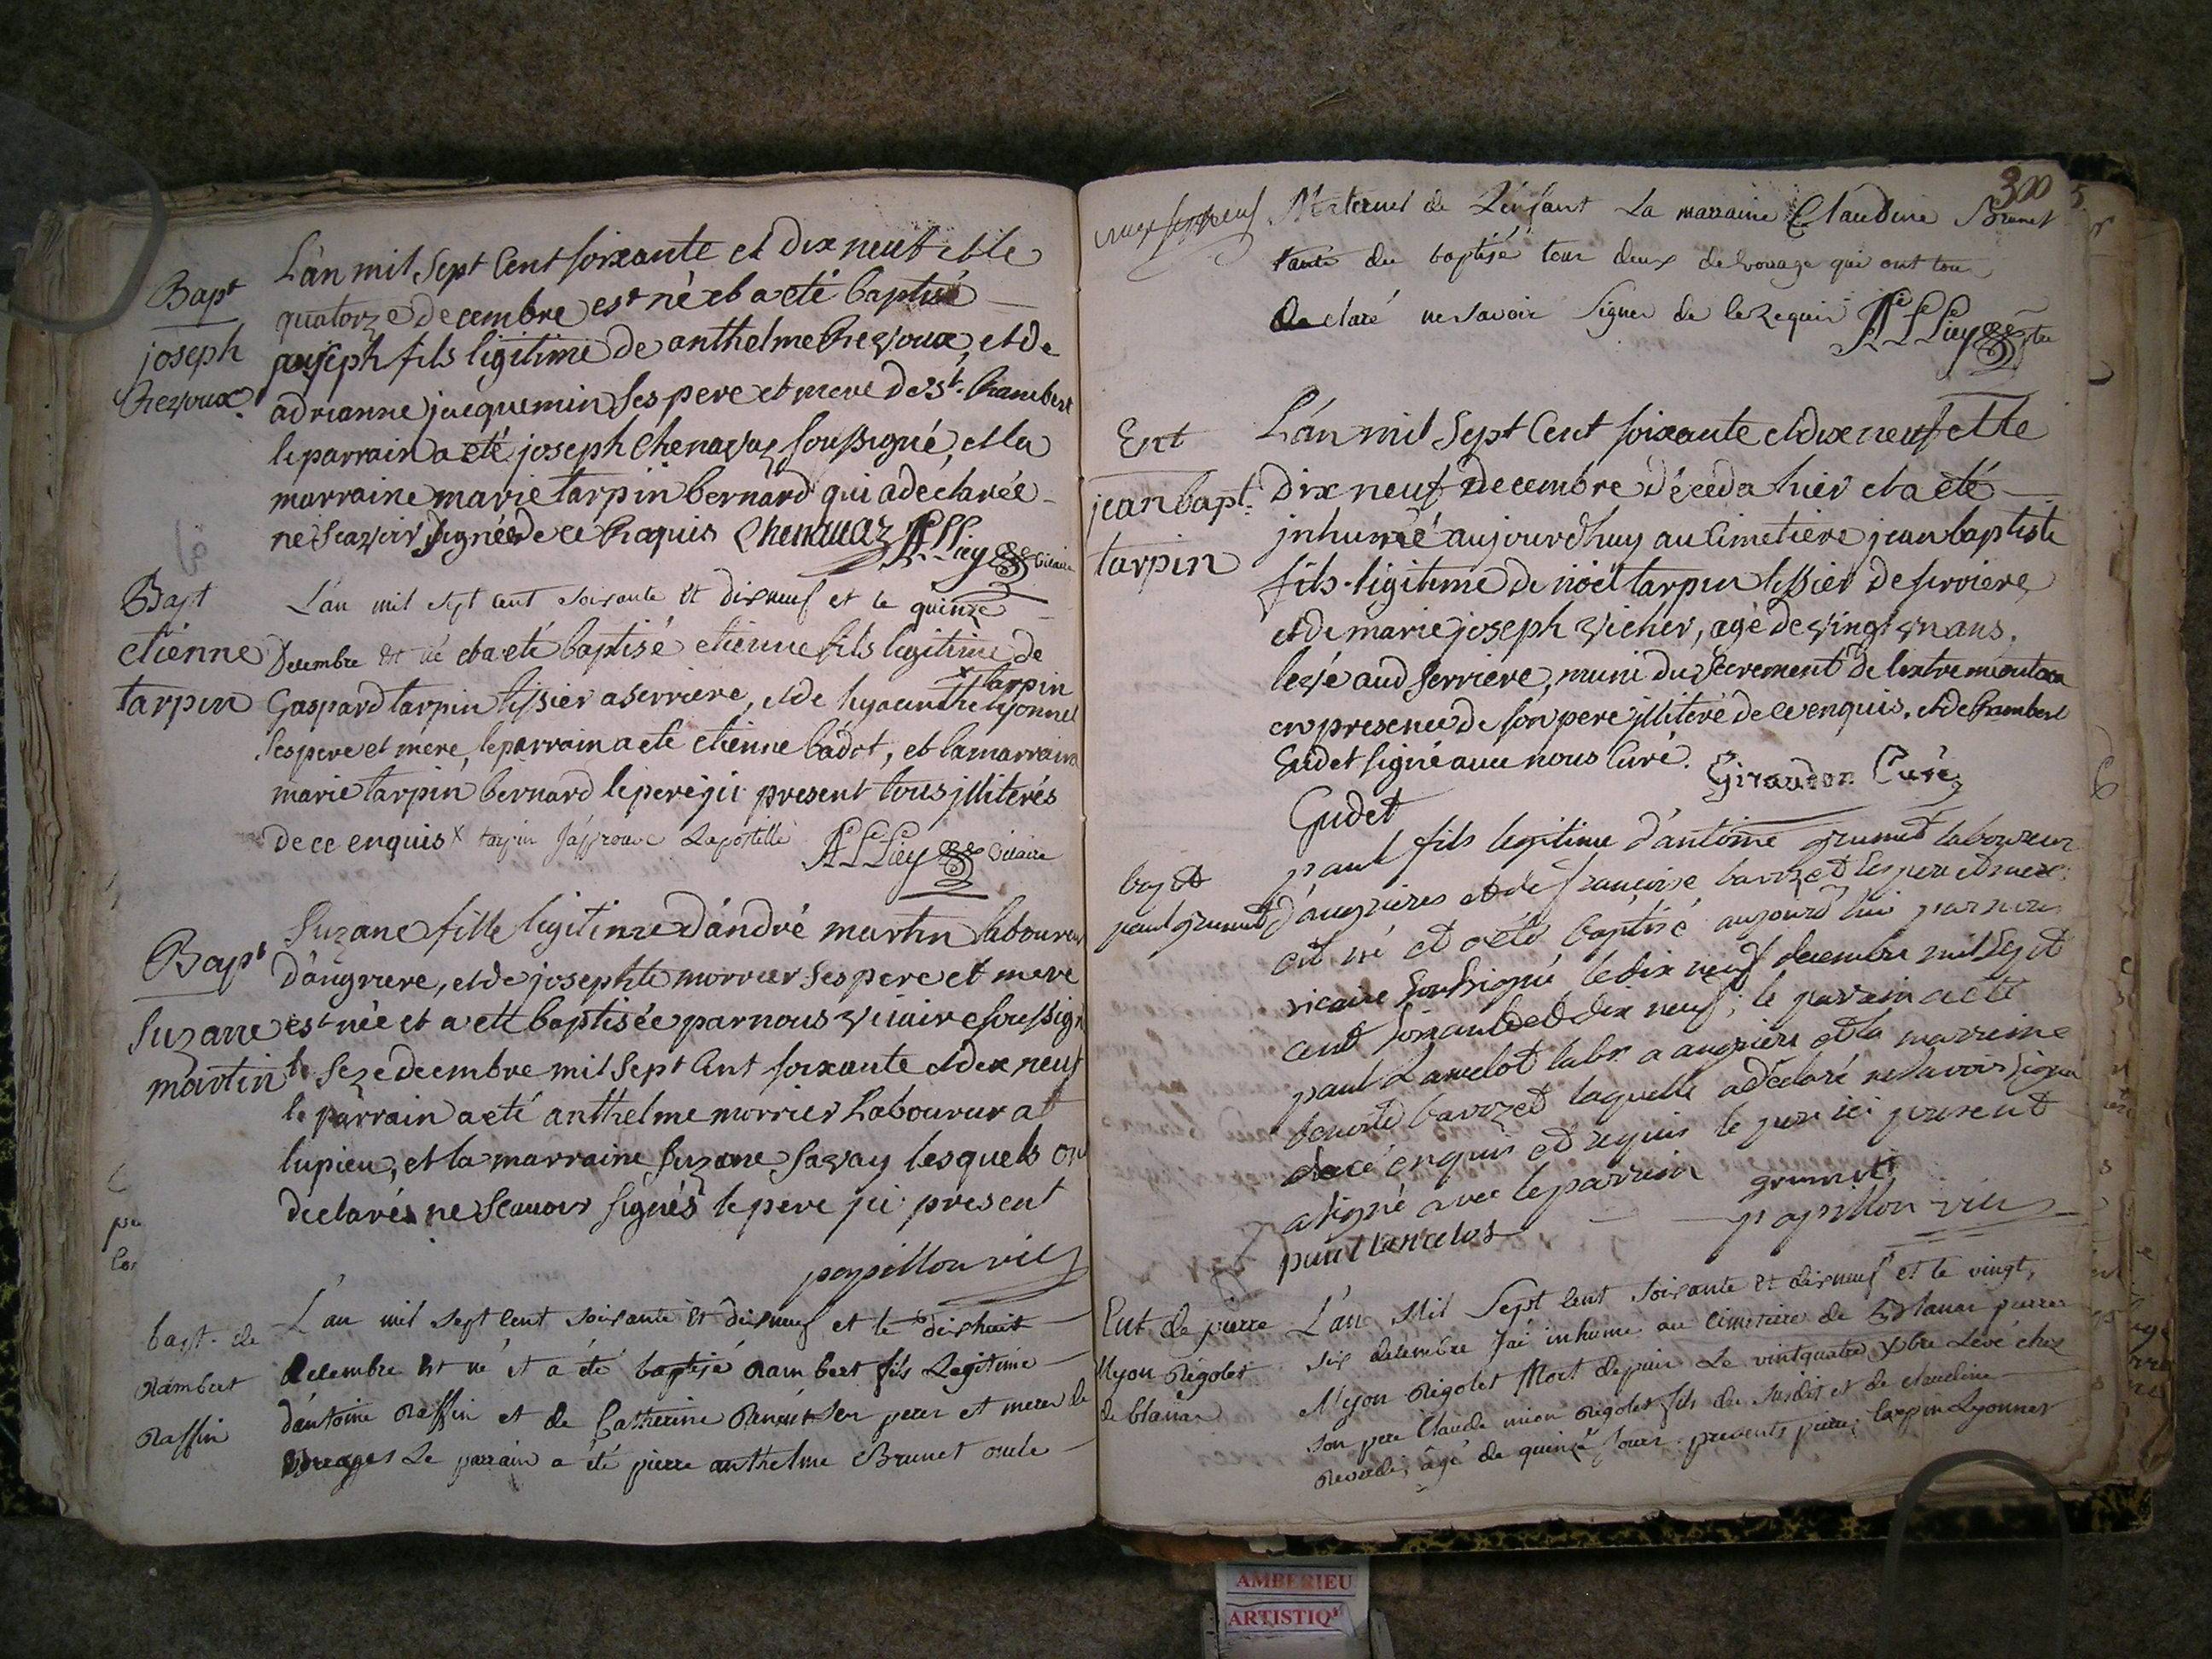 Bapt
joseph
Chezvoux
L'an mil sept Cent soixante et dix neuf et le
quatorze decembre est né et a eté baptisé
joseph fils ligitime de anthelme Chezvoux, et de
adrianne jacquemin ses pere et mere de St. Rambert
le parrain a eté joseph Chenavaz soussigné, et la
marraine marie tarpin bernard qui a declarée
ne scavoir signée de ce Requis Chenavaz
Vicaire
Bapt
etienne
tarpin
L'an mil sept cent soixante et dixneuf et le quinze
Decembre est né et a eté baptisé etienne fils legitime de
x tarpin
Gaspard tarpin tissier a serriere, et de hyacinthe lyonnet
ses pere et mere, le parrain a eté etienne badot, et la marraine
marie tarpin bernard le pere ici present tous illiterés
de ce enquis x tarpin J'approuve Lapostille Vicaire
Bapt
Suzane
martin
Suzane fille legitime d'andré martin laboureur
d'angriere, et de josephte morrier ses pere et mere
est née et a eté baptisée par nous vicaire soussigné
le seze decembre mil sept Cent soixante et dix neuf
le parrain a eté anthelme morrier Laboureur a
lupieu, et la marraine Suzane savay lesquels on
declarés ne scavoir signés le pere ici present
papillon vic
bapt. de
Rambert
Raffin
L'an mil sept cent soixante et dixneuf et le dixhuit
decembre est né et a été baptisé Rambert fils Legitime
d'antoine Raffin et de Catherine ses perer et merer de
Le parrain a été pierre anthelme Brunet oncle
300
Maternel de L'enfant La marraine Claudine Brunet
tante du baptisé tous deux de vorage qui ont tous
declaré ne savoir signer de le Requis
Ent
jean bapt.
tarpin
L'an mil sept Cent soixante et dix neuf et le
dix neuf decembre déceda hier et a eté
inhumé aujourdhuy au Cimetiere jean baptiste
fils ligitime de noël tarpin tissier de serriere
et de marie joseph vicher, agé de vingt un ans.
levé aud serriere, muni du sacrement de l'extremeontion
en presence de son pere illiteré de ce enquis. et de Rambert
Gudet signé avec nous Curé. Giraudon Curé
Gudet
bapt
paul grumet
paul fils legitime d'antoine grumet laboureur
d'angrieres et de françoise bavozet ses pere et mere
est né et a eté baptisé aujourd'hui par nous
vicaire soussigné le dix neuf decembre mil sept
cent soixante et dix neuf; le parrain a eté
paul Lancelot labr a angriere et la marraine
benoite bavozet laquelle a declaré ne savoir signer
de ce enquis et requis le pere ici present
a signé avec le parrain grumet
paul lancelos papillon vic
Ent de pierre
Myon Rigolet
de blanas
L'an Mil Sept cent soixante et dixneuf et le vingt
six decembre J'ai inhumé au cimetiere de Blanas pierre
Myon Rigolet Mort depuis Le vintquatre Xbre Levé chez
son pere Claude mion Rigolet fils du susdit et de claudine
Reverdi, âgé de quinze Jours presents pierre tarpin Lyonnet
AMBERIEU
ARTISTIQ